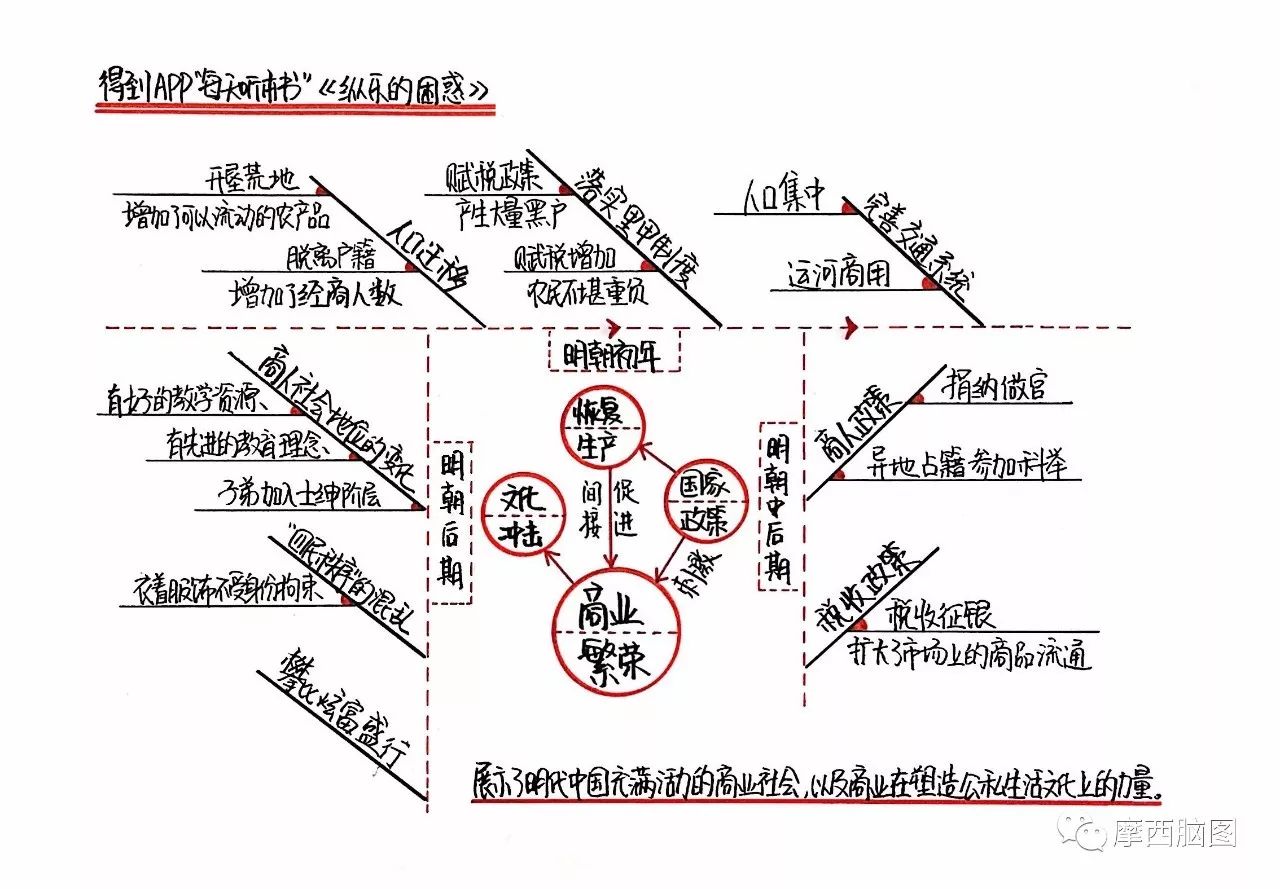 得到APP“每天听本书”《纵乐的困惑》
开垦荒地
增加了可以流动的农产品
脱离户籍
增加了经商人数
人口迁移
赋税政策
产生大量黑户
赋税增加
农民不堪重负
落实里甲制度
人口集中
运河商用
完善交通系统
明朝初年
商人社会地位的变化
有好的教学资源、
有先进的教育理念、
子弟加入士绅阶层
“四民秩序”的混乱
衣着服饰不受身份拘束
攀比炫富盛行
明朝后期
恢复
生产
国家
政策
文化
冲击
商业
繁荣
间接
促进
刺激
明朝中后期
商人政策
捐纳做官
异地占籍参加科举
税收政策
税收征银
扩大了市场上的商品流通
展示了明代中国充满活力的商业社会,以及商业在塑造公私生活文化上的力量。
摩西脑图